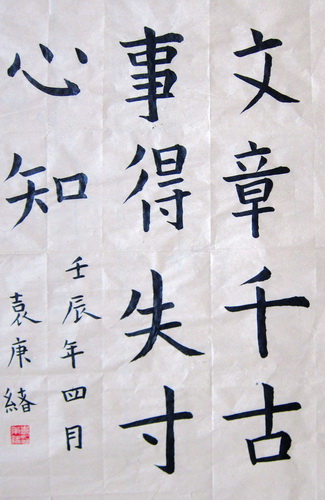 文章千古
事得失寸
心知
壬辰年四月
袁庚緒